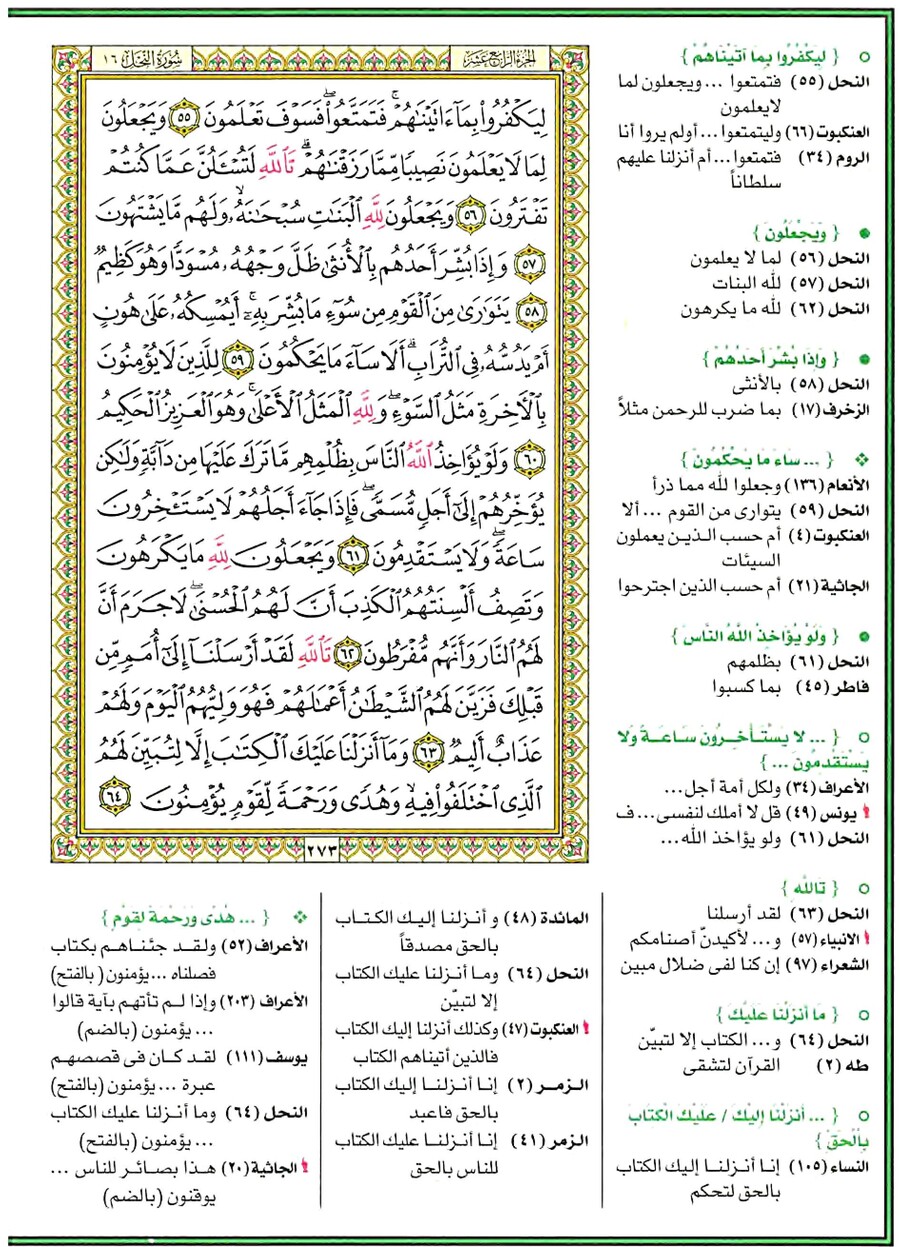 الجزء الرابع عشر
سورة النحل ١٦
لِيَكْفُرُوا۟ بِمَآ ءَاتَيْنَٰهُمْ ۚ فَتَمَتَّعُوا۟ ۖ فَسَوْفَ تَعْلَمُونَ ٥٥ وَيَجْعَلُونَ
لِمَا لَا يَعْلَمُونَ نَصِيبًا مِّمَّا رَزَقْنَٰهُمْ ۗ تَٱللَّهِ لَتُسْـَٔلُنَّ عَمَّا كُنتُمْ
تَفْتَرُونَ ٥٦ وَيَجْعَلُونَ لِلَّهِ ٱلْبَنَٰتِ سُبْحَٰنَهُۥ ۙ وَلَهُم مَّا يَشْتَهُونَ
٥٧ وَإِذَا بُشِّرَ أَحَدُهُم بِٱلْأُنثَىٰ ظَلَّ وَجْهُهُۥ مُسْوَدًّا وَهُوَ كَظِيمٌ
٥٨ يَتَوَٰرَىٰ مِنَ ٱلْقَوْمِ مِن سُوٓءِ مَا بُشِّرَ بِهِۦٓ ۚ أَيُمْسِكُهُۥ عَلَىٰ هُونٍ
أَمْ يَدُسُّهُۥ فِى ٱلتُّرَابِ ۗ أَلَا سَآءَ مَا يَحْكُمُونَ ٥٩ لِلَّذِينَ لَا يُؤْمِنُونَ
بِٱلْأَخِرَةِ مَثَلُ ٱلسَّوْءِ ۖ وَلِلَّهِ ٱلْمَثَلُ ٱلْأَعْلَىٰ ۚ وَهُوَ ٱلْعَزِيزُ ٱلْحَكِيمُ
٦٠ وَلَوْ يُؤَاخِذُ ٱللَّهُ ٱلنَّاسَ بِظُلْمِهِم مَّا تَرَكَ عَلَيْهَا مِن دَآبَّةٍ وَلَٰكِن
يُؤَخِّرُهُمْ إِلَىٰٓ أَجَلٍ مُّسَمًّى ۖ فَإِذَا جَآءَ أَجَلُهُمْ لَا يَسْتَـْٔخِرُونَ
سَاعَةً ۖ وَلَا يَسْتَقْدِمُونَ ٦١ وَيَجْعَلُونَ لِلَّهِ مَا يَكْرَهُونَ
وَتَصِفُ أَلْسِنَتُهُمُ ٱلْكَذِبَ أَنَّ لَهُمُ ٱلْحُسْنَىٰ ۖ لَا جَرَمَ أَنَّ
لَهُمُ ٱلنَّارَ وَأَنَّهُم مُّفْرَطُونَ ٦٢ تَٱللَّهِ لَقَدْ أَرْسَلْنَآ إِلَىٰٓ أُمَمٍ مِّن
قَبْلِكَ فَزَيَّنَ لَهُمُ ٱلشَّيْطَٰنُ أَعْمَٰلَهُمْ فَهُوَ وَلِيُّهُمُ ٱلْيَوْمَ وَلَهُمْ
عَذَابٌ أَلِيمٌ ٦٣ وَمَآ أَنزَلْنَا عَلَيْكَ ٱلْكِتَٰبَ إِلَّا لِتُبَيِّنَ لَهُمُ
ٱلَّذِى ٱخْتَلَفُوا۟ فِيهِ ۙ وَهُدًى وَرَحْمَةً لِّقَوْمٍ يُؤْمِنُونَ ٦٤
٢٧٣
{ لِيَكْفُرُوا بِمَا آتَيْنَاهُمْ }
النحل (٥٥) فتمتعوا ... ويجعلون لما
لايعلمون
العنكبوت (٦٦) وليتمتعوا ... أولم يروا أنا
الروم (٣٤) فتمتعوا ... أم أنزلنا عليهم
سلطاناً
{ وَيَجْعَلُونَ }
النحل (٥٦) لما لا يعلمون
النحل (٥٧) لله البنات
النحل (٦٢) لله ما يكرهون
{ وَإِذَا بُشِّرَ أَحَدُهُمْ }
النحل (٥٨) بالأنثى
الزخرف (١٧) بما ضرب للرحمن مثلاً
{ ... سَاءَ مَا يَحْكُمُونَ }
الأنعام (١٣٦) وجعلوا لله مما ذرأ
النحل (٥٩) يتوارى من القوم ... ألا
العنكبوت (٤) أم حسب الذين يعملون
السيئات
الجاثية (٢١) أم حسب الذين اجترحوا
{ وَلَوْ يُؤَاخِذُ اللَّهُ النَّاسَ }
النحل (٦١) بظلمهم
فاطر (٤٥) بما كسبوا
{ ... لا يَسْتَأْخِرُونَ سَاعَةً وَلا
يَسْتَقْدِمُونَ ... }
الأعراف (٣٤) ولكل أمة أجل ...
! يونس (٤٩) قل لا أملك لنفسى ... ف
النحل (٦١) ولو يؤاخذ الله ...
{ تَاللَّهِ }
النحل (٦٣) لقد أرسلنا
! الانبياء (٥٧) و ... لأكيدنّ أصنامكم
الشعراء (٩٧) إن كنا لفى ضلال مبين
{ مَا أَنزَلْنَا عَلَيْكَ }
النحل (٦٤) و ... الكتاب إلا لتبيّن
طه (٢) القرآن لتشقى
{ ... أَنزَلْنَا إِلَيْكَ / عَلَيْكَ الْكِتَابَ
بِالْحَقِّ }
النساء (١٠٥) إنا أنزلنا إليك الكتاب
بالحق لتحكم
المائدة (٤٨) و أنزلنا إليك الكتاب
بالحق مصدقاً
النحل (٦٤) وما أنزلنا عليك الكتاب
إلا لتبيّن
! العنكبوت (٤٧) وكذلك أنزلنا إليك الكتاب
فالذين أتيناهم الكتاب
الزمر (٢) إنا أنزلنا إليك الكتاب
بالحق فاعبد
الزمر (٤١) إنا أنزلنا عليك الكتاب
للناس بالحق
{ ... هُدًى وَرَحْمَةً لِقَوْمٍ }
الأعراف (٥٢) ولقد جئناهم بكتاب
فصلناه ... يؤمنون (بالفتح)
الأعراف (٢٠٣) وإذا لم تأتهم بآية قالوا
... يؤمنون (بالضم)
يوسف (١١١) لقد كان فى قصصهم
عبرة ... يؤمنون (بالفتح)
النحل (٦٤) وما أنزلنا عليك الكتاب
... يؤمنون (بالفتح)
! الجاثية (٢٠) هذا بصائر للناس ...
يوقنون (بالضم)